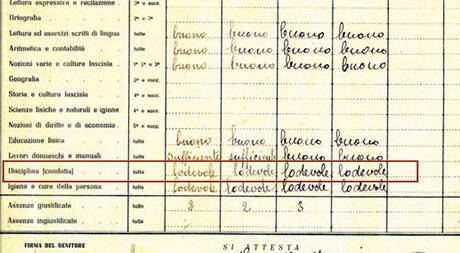 Lettura espressiva e recitazione 3ª e succ.
Ortografia 3ª e succ.
Lettura ed esercizi scritti di lingua tutte buono buono buono buono
Aritmetica e contabilità tutte buono buono buono buono
Nozioni varie e cultura fascista 1ª 2ª e 3ª buono buono buono buono
Geografia
Storia e cultura fascista 4ª e succ.
Scienze fisiche e naturali e igiene 4ª e succ.
Nozioni di diritto e di economia 5ª e succ.
Educazione fisica tutte buono buono buono buono
Lavori donneschi e manuali tutte sufficiente sufficiente buono buono
Disciplina (condotta) tutte lodevole lodevole lodevole lodevole
Igiene e cura della persona tutte lodevole lodevole lodevole lodevole
Assenze giustificate tutte 2 3
Assenze ingiustificate tutte
FIRMA DEL GENITORE SI ATTESTA